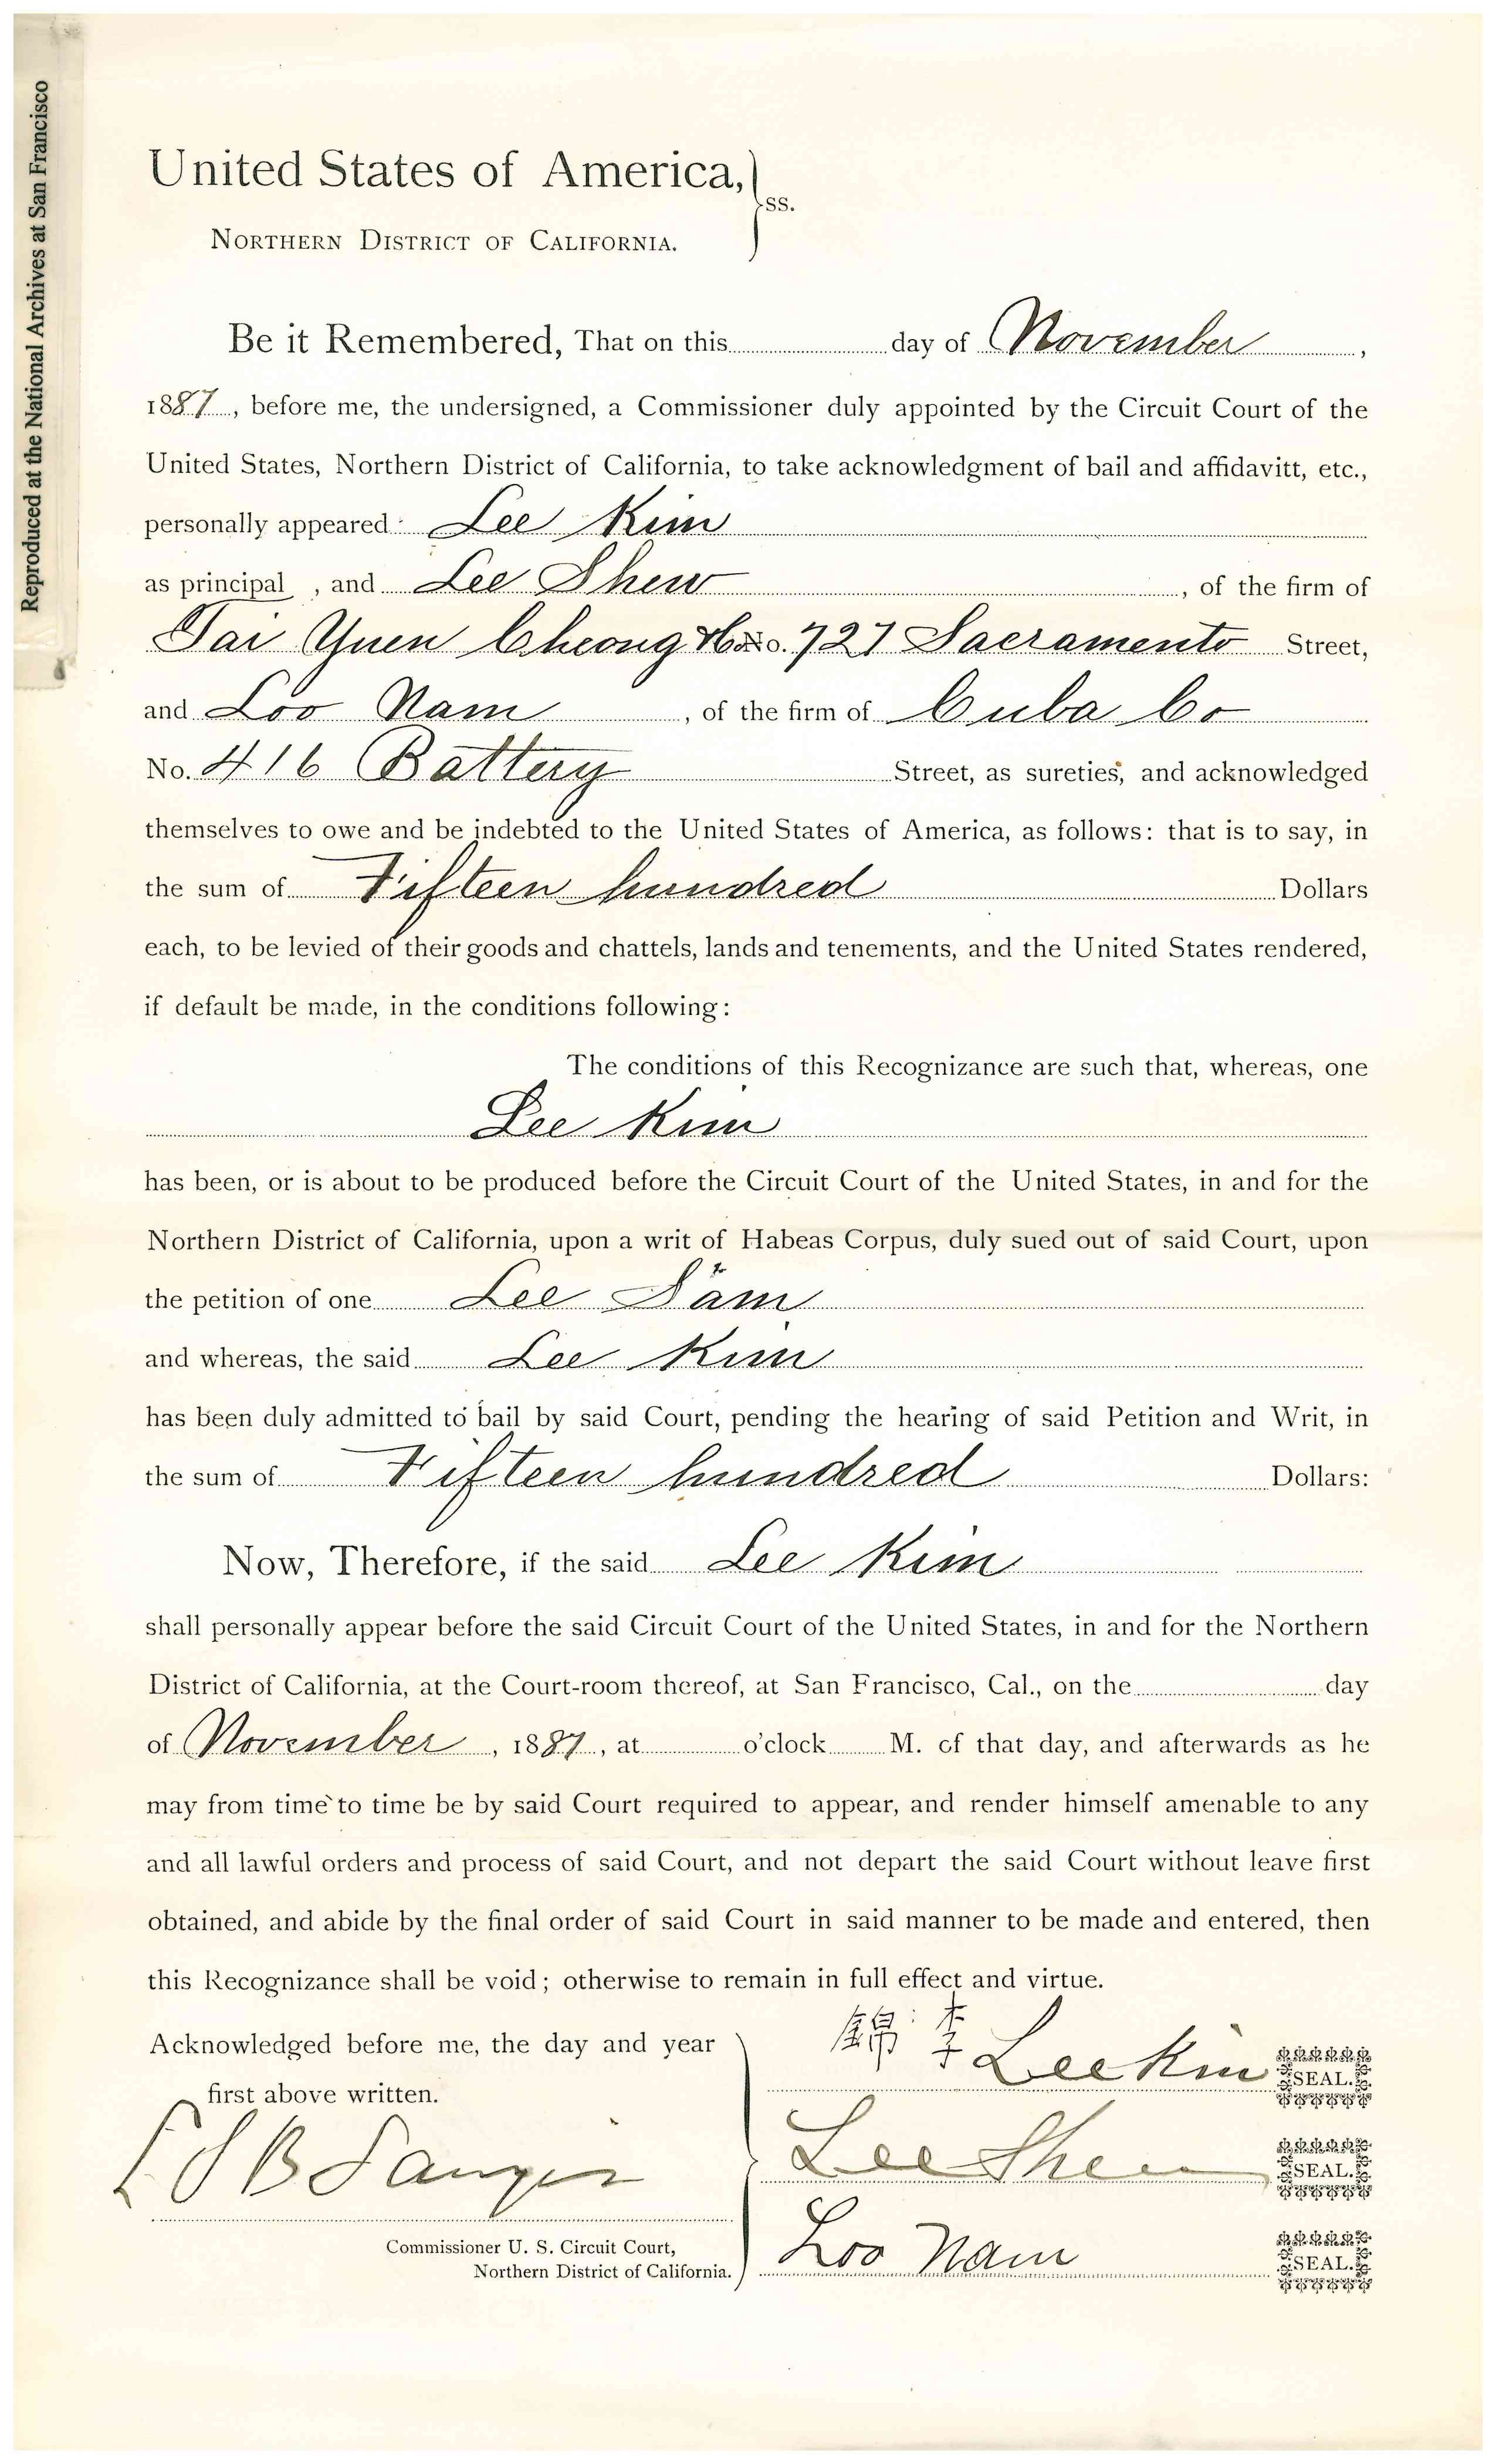 Reproduced at the National Archives at San Francisco
United States of America,
ss.
NORTHERN DISTRICT OF CALIFORNIA.
Be it Remembered, That on this day of November,
1887, before me, the undersigned, a Commissioner duly appointed by the Circuit Court of the
United States, Northern District of California, to take acknowledgment of bail and affidavitt, etc.,
personally appeared Lee Kim
as principal , and Lee Shew, of the firm of
Tai Yuen Cheong & Co No. 727 Sacramento Street,
and Loo Nam, of the firm of Cuba Co
No. 416 Battery Street, as sureties, and acknowledged
themselves to owe and be indebted to the United States of America, as follows: that is to say, in
the sum of Fifteen hundred Dollars
each, to be levied of their goods and chattels, lands and tenements, and the United States rendered,
if default be made, in the conditions following:
The conditions of this Recognizance are such that, whereas, one
Lee Kim
has been, or is about to be produced before the Circuit Court of the United States, in and for the
Northern District of California, upon a writ of Habeas Corpus, duly sued out of said Court, upon
the petition of one Lee Sam
and whereas, the said Lee Kim
has been duly admitted to bail by said Court, pending the hearing of said Petition and Writ, in
the sum of Fifteen hundred Dollars:
Now, Therefore, if the said Lee Kim
shall personally appear before the said Circuit Court of the United States, in and for the Northern
District of California, at the Court-room thereof, at San Francisco, Cal., on the day
of November, 1887, at o'clock M. of that day, and afterwards as he
may from time to time be by said Court required to appear, and render himself amenable to any
and all lawful orders and process of said Court, and not depart the said Court without leave first
obtained, and abide by the final order of said Court in said manner to be made and entered, then
this Recognizance shall be void; otherwise to remain in full effect and virtue.
Acknowledged before me, the day and year
first above written.
錦 李 Lee Kim SEAL.
Lee Shew SEAL.
Commissioner U. S. Circuit Court,
Northern District of California.
Loo Nam SEAL.